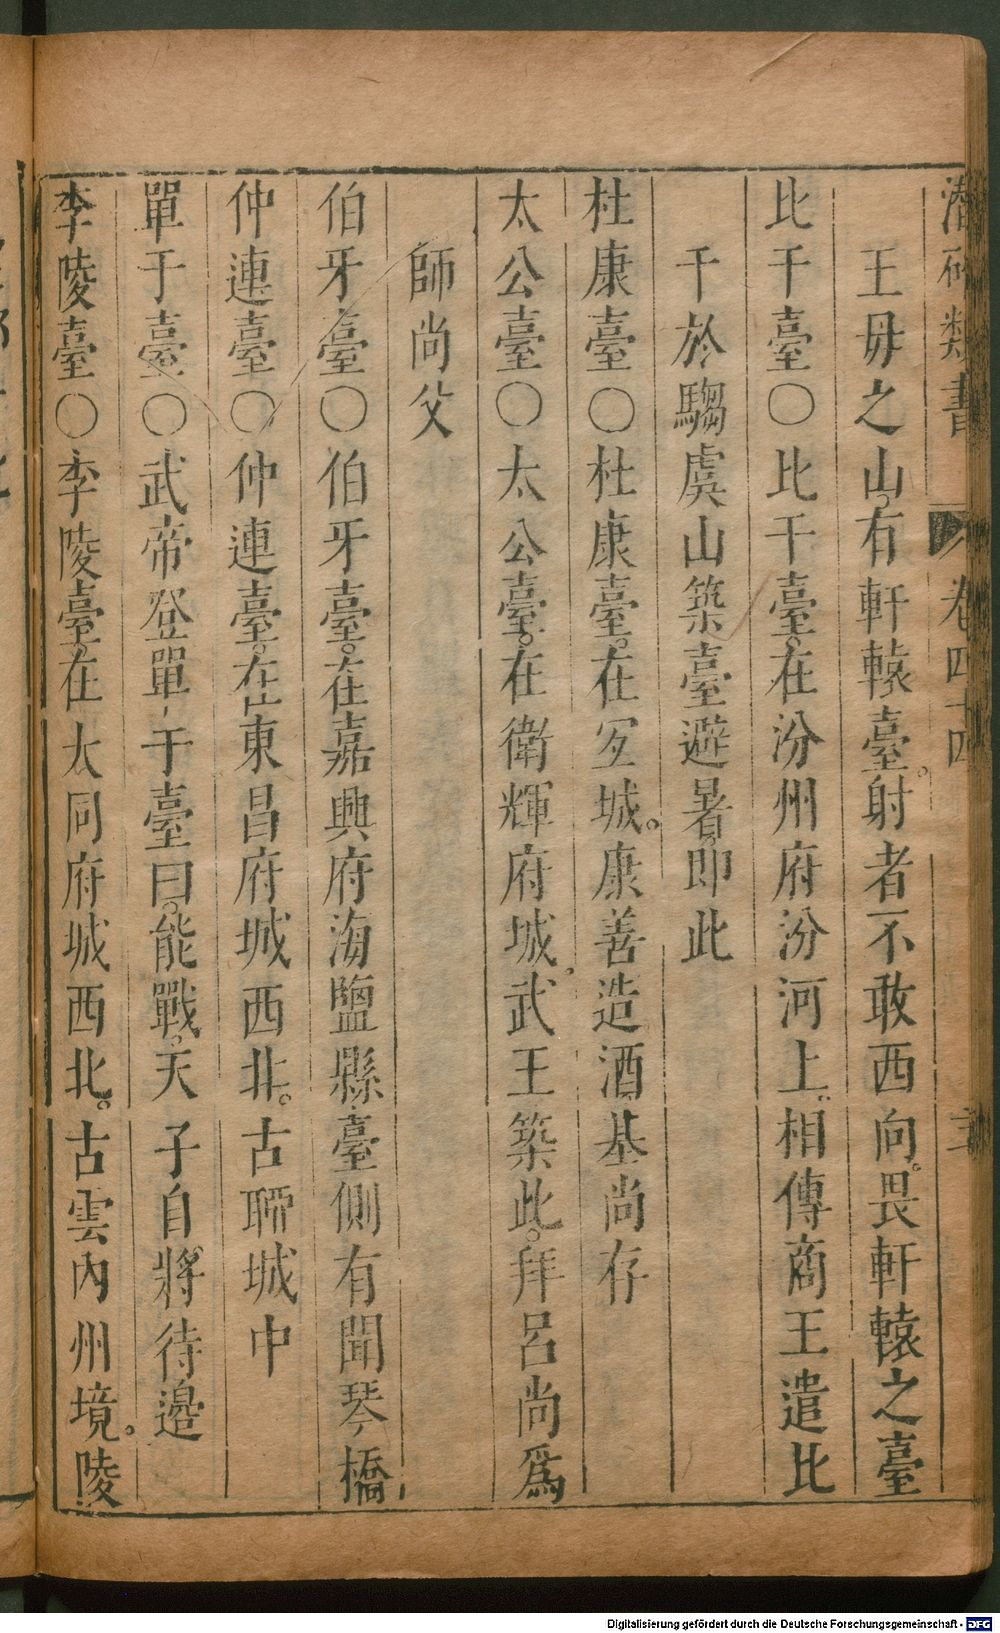 潛確類書 卷四十四
王母之山。有軒轅臺。射者不敢西向。畏軒轅之臺
比干臺〇比干臺。在汾州府汾河上。相傳商王遣比
干於騶虞山築臺避暑。即此
杜康臺〇杜康臺。在城。康善造酒。基尚存
太公臺〇太公臺。在衛輝府城。武王築此。拜呂尚爲
師尚父
伯牙臺〇伯牙臺。在嘉興府海鹽縣。臺側有聞琴橋
仲連臺〇仲連臺。在東昌府城西北。古聊城中
單于臺〇武帝登單于臺曰。能戰。天子自將待邉
李陵臺〇李陵臺。在大同府城西北。古雲內州境。陵
Digitalisierung gefördert durch die Deutsche Forschungsgemeinschaft - DFG